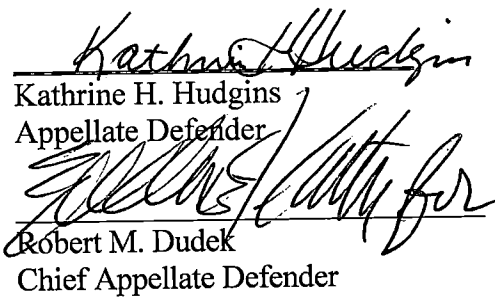 Kathrine H Hudgins
Kathrine H. Hudgins
Appellate Defender
for
Robert M. Dudek
Chief Appellate Defender